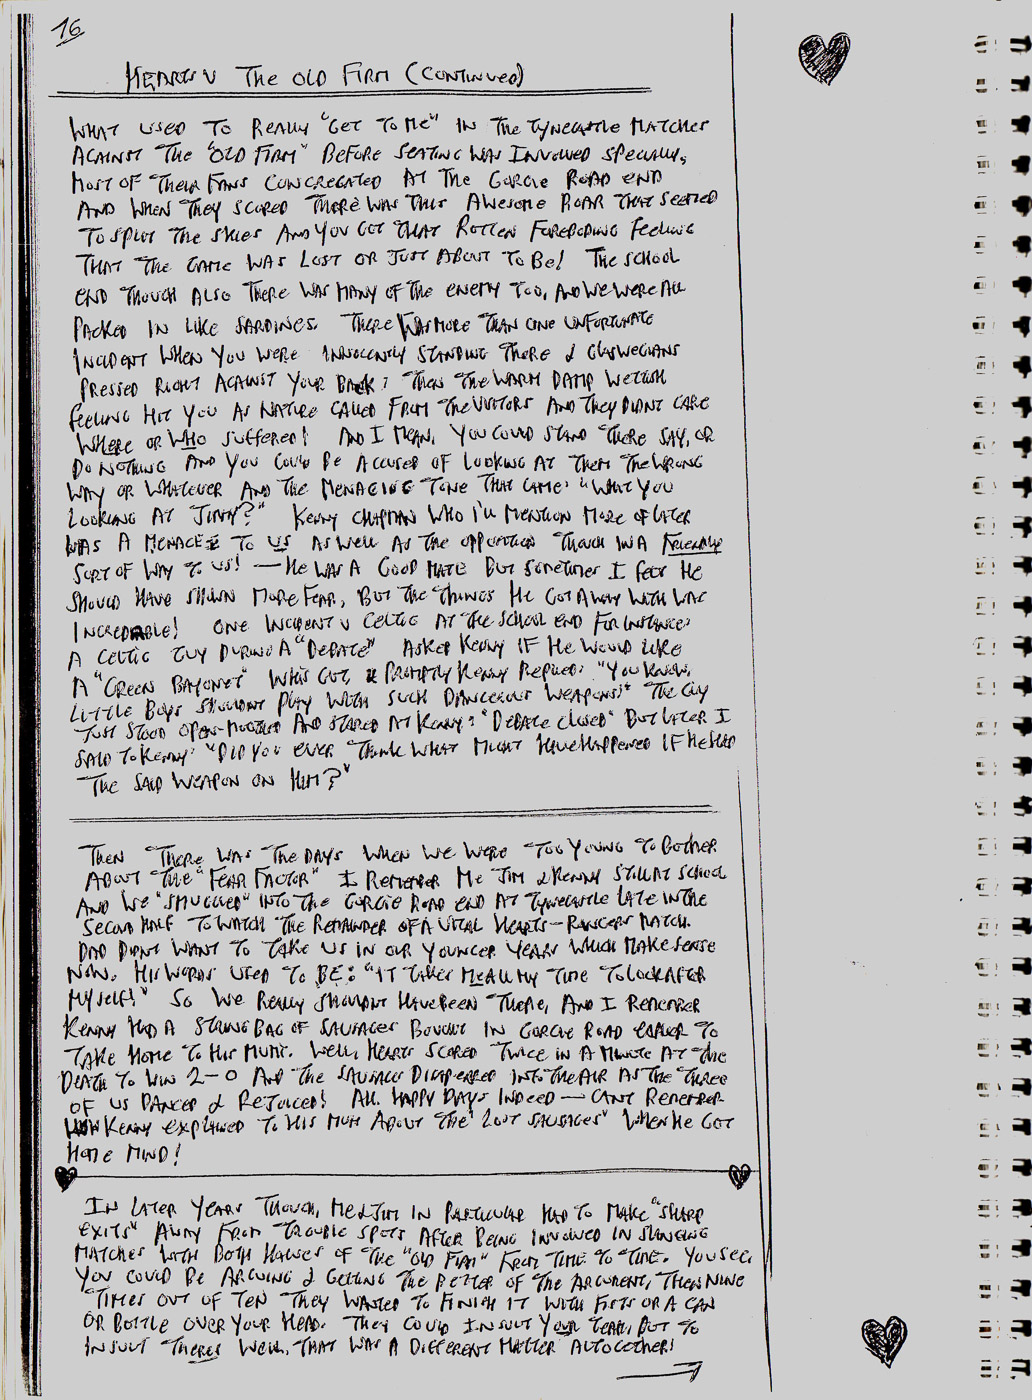 16
HEARTS V THE OLD FIRM (CONTINUED)
WHAT USED TO REALLY "GET TO ME" IN THE TYNECASTLE MATCHES
AGAINST THE "OLD FIRM" BEFORE SEATING WAS INVOLVED SPECIALLY,
MOST OF THEIR FANS CONGREGATED AT THE GORGIE ROAD END
AND WHEN THEY SCORED THERE WAS THIS AWESOME ROAR THAT SEEMED
TO SPLIT THE SKIES AND YOU GOT THAT ROTTEN FOREBODING FEELING
THAT THE GAME WAS LOST OR JUST ABOUT TO BE! THE SCHOOL
END THOUGH ALSO THERE WAS MANY OF THE ENEMY TOO, AND WE WERE ALL
PACKED IN LIKE SARDINES. THERE WAS MORE THAN ONE UNFORTUNATE
INCIDENT WHEN YOU WERE INNOCENTLY STANDING THERE & GLASWEGIANS
PRESSED RIGHT AGAINST YOUR BACK: THEN THE WARM DAMP WETTISH
FEELING HIT YOU AS NATURE CALLED FROM THE VISITORS AND THEY DIDNT CARE
WHERE OR WHO SUFFERED! AND I MEAN, YOU COULD STAND THERE SAY, OR
DO NOTHING AND YOU COULD BE ACCUSED OF LOOKING AT THEM THE WRONG
WAY OR WHATEVER AND THE MENACING TONE THAT CAME: "WHAT YOU
LOOKING AT JIMMY?" KENNY CHAPMAN WHO I'LL MENTION MORE OF LATER
WAS A MENACE TO US AS WELL AS THE OPPOSITION THOUGH IN A FRIENDLY
SORT OF WAY TO US! — HE WAS A GOOD MATE BUT SOMETIMES I FELT HE
SHOULD HAVE SHOWN MORE FEAR, BUT THE THINGS HE GOT AWAY WITH WAS
INCREDABLE! ONE INCIDENT V CELTIC AT THE SCHOOL END FOR INSTANCE:
A CELTIC GUY DURING A "DEBATE" ASKED KENNY IF HE WOULD LIKE
A "GREEN BAYONET" IN HIS GUT, & PROMPTLY KENNY REPLIED: "YOU KNOW,
LITTLE BOYS SHOULDNT PLAY WITH SUCH DANGEROUS WEAPONS!" THE GUY
JUST STOOD OPEN-MOUTHED AND STARED AT KENNY: "DEBATE CLOSED" BUT LATER I
SAID TO KENNY: "DID YOU EVER THINK WHAT MIGHT HAVE HAPPENED IF HE HAD
THE SAID WEAPON ON HIM?"
THEN THERE WAS THE DAYS WHEN WE WERE TOO YOUNG TO BOTHER
ABOUT THE "FEAR FACTOR" I REMEMBER ME JIM & KENNY STILL AT SCHOOL
AND WE "SMUGGLED" INTO THE GORGIE ROAD END AT TYNECASTLE LATE IN THE
SECOND HALF TO WATCH THE REMAINDER OF A VITAL HEARTS — RANGERS MATCH.
DAD DIDNT WANT TO TAKE US IN OUR YOUNGER YEARS WHICH MAKE SENSE
NOW. HIS WORDS USED TO BE: "IT TAKES ME ALL MY TIME TO LOOK AFTER
MYSELF!" SO WE REALLY SHOULDNT HAVE BEEN THERE, AND I REMEMBER
KENNY HAD A STRING BAG OF SAUSAGES BOUGHT IN GORGIE ROAD EARLIER TO
TAKE HOME TO HIS MUM. WELL, HEARTS SCORED TWICE IN A MINUTE AT THE
DEATH TO WIN 2-0 AND THE SAUSAGES DISAPPEARED INTO THE AIR AS THE THREE
OF US DANCED & REJOICED! ALL HAPPY DAYS INDEED — CANT REMEMBER
HOW KENNY EXPLAINED TO HIS MUM ABOUT THE "LOST SAUSAGES" WHEN HE GOT
HOME MIND!
IN LATER YEARS THOUGH, ME & JIM IN PARTICULAR HAD TO MAKE "SHARP
EXITS" AWAY FROM TROUBLE SPOTS AFTER BEING INVOLVED IN SLANGING
MATCHES WITH BOTH HALVES OF THE "OLD FIRM" FROM TIME TO TIME. YOU SEE,
YOU COULD BE ARGUING & GETTING THE BETTER OF THE ARGUMENT, THEN NINE
TIMES OUT OF TEN THEY WANTED TO FINISH IT WITH FISTS OR A CAN
OR BOTTLE OVER YOUR HEAD. THEY COULD INSULT YOUR TEAM, BUT TO
INSULT THEIRS WELL, THAT WAS A DIFFERENT MATTER ALTOGETHER!